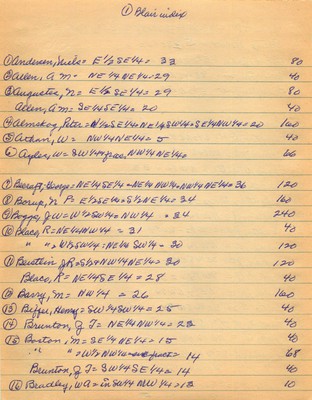 ① Blair index
① Andersen, Niels = E½ SE¼ = 33 80
② Allen, A M = NE¼ NE¼ = 29 40
③ Augustus, N = E½ SE¼ = 29 80
Allen, A M = SE¼ SE¼ = 20 40
④ Almskog, Peter = N½ SE¼ + NE¼ SW¼ + SE¼ NW¼ = 20 160
⑤ Athan, W = NW¼ NE¼ = 5 40
⑥ Ayler, W = SW¼ + frac. NW¼ NE¼ = 66
⑦ Bercraft, George = NE¼ SE¼ = NE¼ NW¼ + NW¼ NE¼ = 36 120
⑧ Borup, N P = E½ SE¼ + S½ NE¼ = 34 160
⑨ Boggs, J W = W½ SW¼ + NW¼ = 34 240
⑩ Blaco, R = NE¼ NW¼ = 31 40
" " = W½ SW¼ + NE¼ SW¼ = 30 120
⑪ Beutlein J R = S½ NW¼ NW¼ NE¼ = 30 120
Blaco, R = NE¼ SE¼ = 28 40
⑫ Barry, M = NW¼ = 26 160
⑬ Biffar, Henry = SW¼ SW¼ = 25 40
⑭ Brunton, J T = NE¼ NW¼ = 23 40
⑮ Boston, M = SE¼ NE¼ = 15 40
" " = W½ NW¼ = 14 68
Brunton, J T = SW¼ SE¼ = 14 40
⑯ Bradley, W A = in SW¼ NW¼ = 13 10